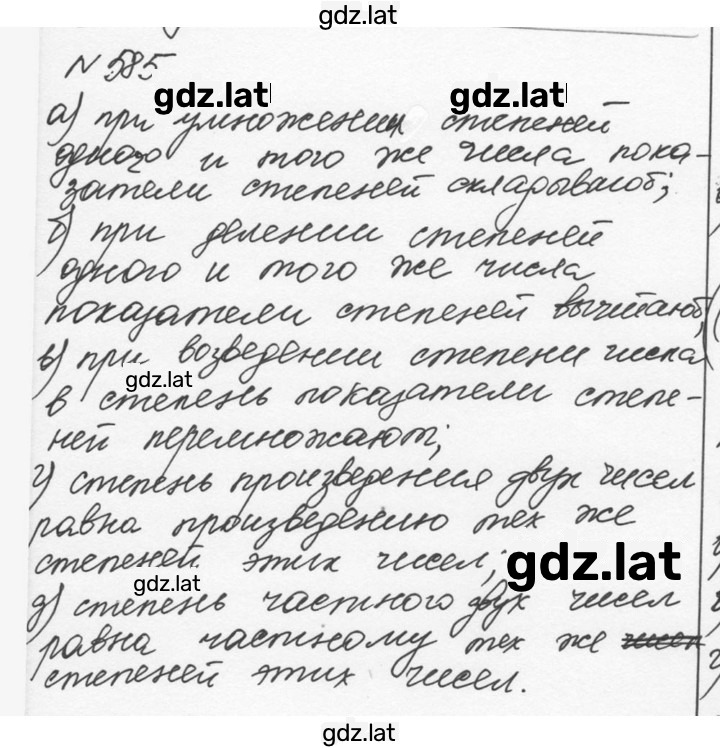 gdz.lat
N 585
gdz.lat gdz.lat
а) при умножении степеней
одного и того же числа пока-
затели степеней складывают;
б) при делении степеней
одного и того же числа
показатели степеней вычитают;
в) при возведении степени числа
gdz.lat
в степень показатели степе-
ней перемножают;
г) степень произведения двух чисел
равна произведению тех же
степеней этих чисел;
gdz.lat
gdz.lat
д) степень частного двух чисел
равна частному тех же
степеней этих чисел.
gdz.lat